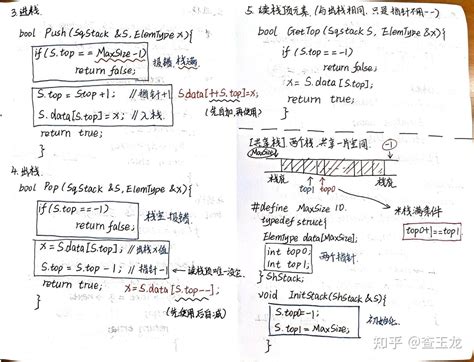 3. 进栈.
bool Push(SqStack &S, ElemType x){
if(S.top == MaxSize-1) 报错, 栈满
return false;
S.top = Stop+1; //指针+1 S.data[++S.top]=x;
S.data[S.top]=x; //入栈. (先自加,再使用)
return true;
}
4. 出栈.
bool Pop(SqStack &S, ElemType &x){
if(S.top==-1) 栈空,报错.
return false;
x = S.data[S.top]; //出栈x值
S.top = S.top-1; //指针-1
return true; x=S.data[S.top--];
} (先使用后自减)
5. 读栈顶元素. (与出栈相同, 只是指针不用--)
bool GetTop(SqStack S, ElemType &x){
if(S.top==-1)
return false;
x = S.data[S.top];
return true;
}
[共享栈] 两个栈,共享一片空间. -1
MaxSize
栈底 top1 top0 栈底
#define MaxSize 10. *栈满条件
typedef struct{ top0+1==top1
ElemType data[MaxSize];
int top0; 两个指针.
int top1;
}ShStack;
void InitStack(ShStack &S){
S.top0=-1; 初始化.
S.top1=MaxSize;
}
知乎 @查王龙